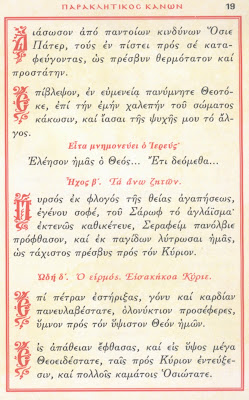 ΠΑΡΑΚΛΗΤΙΚΟΣ ΚΑΝΩΝ 19
Διάσωσον ἀπό παντοίων κινδύνων Ὅσιε
Πάτερ, τούς ἐν πίστει πρός σέ κατα-
φεύγοντας, ὡς πρέσβυν θερμότατον καί
προστάτην.
Ἐπίβλεψον, ἐν εὐμενείᾳ πανύμνητε Θεοτό-
κε, ἐπί τήν ἐμήν χαλεπήν τοῦ σώματος
κάκωσιν, καί ἴασαι τῆς ψυχῆς μου τό ἄλ-
γος.
Εἶτα μνημονεύει ὁ Ἱερεύς·
Ἐλέησον ἡμᾶς ὁ Θεός... Ἔτι δεόμεθα...
Ἦχος β΄. Τά ἄνω ζητῶν.
Πυρσός ἐκ φλογός τῆς θείας ἀγαπήσεως,
ἐγένου σοφέ, τοῦ Σάρωφ τό ἀγλάϊσμα·
ἐκτενῶς καθικέτευε, Σεραφείμ πανόλβιε
πρόφθασον, καί ἐκ παγίδων λύτρωσαι ἡμᾶς,
ὡς τάχιστος πρέσβυς πρός τόν Κύριον.
ᾨδή δ΄. Ὁ εἱρμός. Εἰσακήκοα Κύριε.
Ἐπί πέτραν ἐστήριξας, γόνυ καί καρδίαν
πανευλαβέστατε, ὁλονύκτιον προσέφερες,
ὕμνον πρός τόν ὕψιστον Θεόν ἡμῶν.
Εἰς ἀπάθειαν ἔφθασας, καί εἰς ὕψος μέγα
Θεοειδέστατε, ταῖς πρός Κύριον ἐντεύξε-
σιν, καί πολλοῖς καμάτοις Ὁσιώτατε.